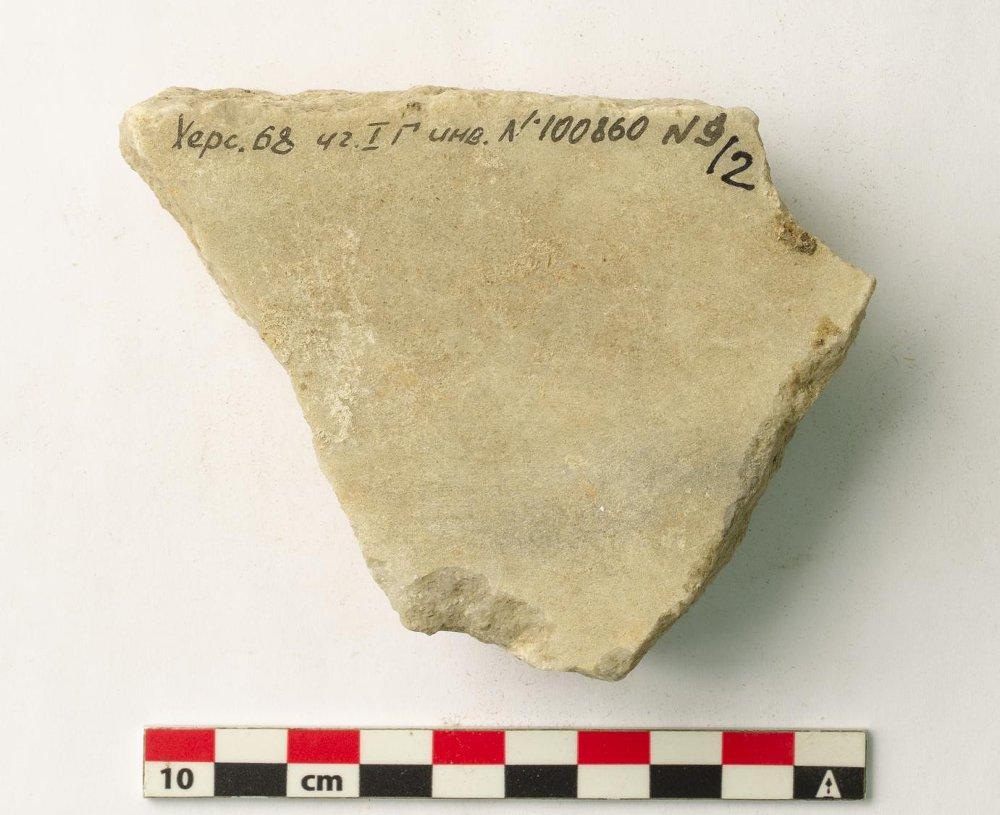 Херс. 68 чг. I Г инв. № 100860 N 9/2
10 cm